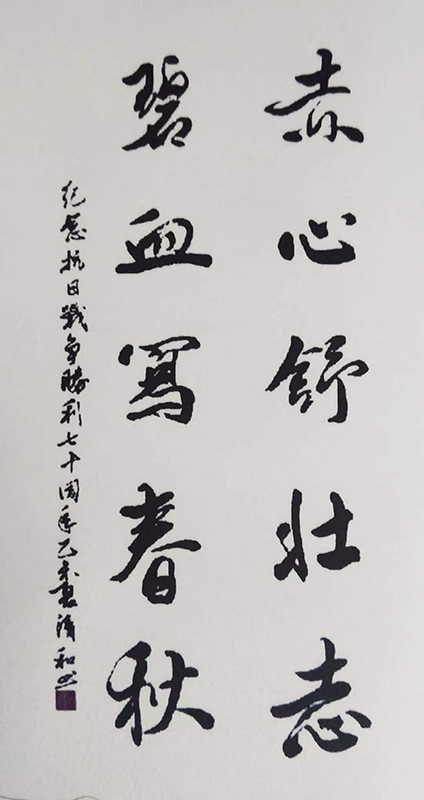 赤心舒壮志
碧血寫春秋
紀念抗日戰爭勝利七十周年乙未書清和